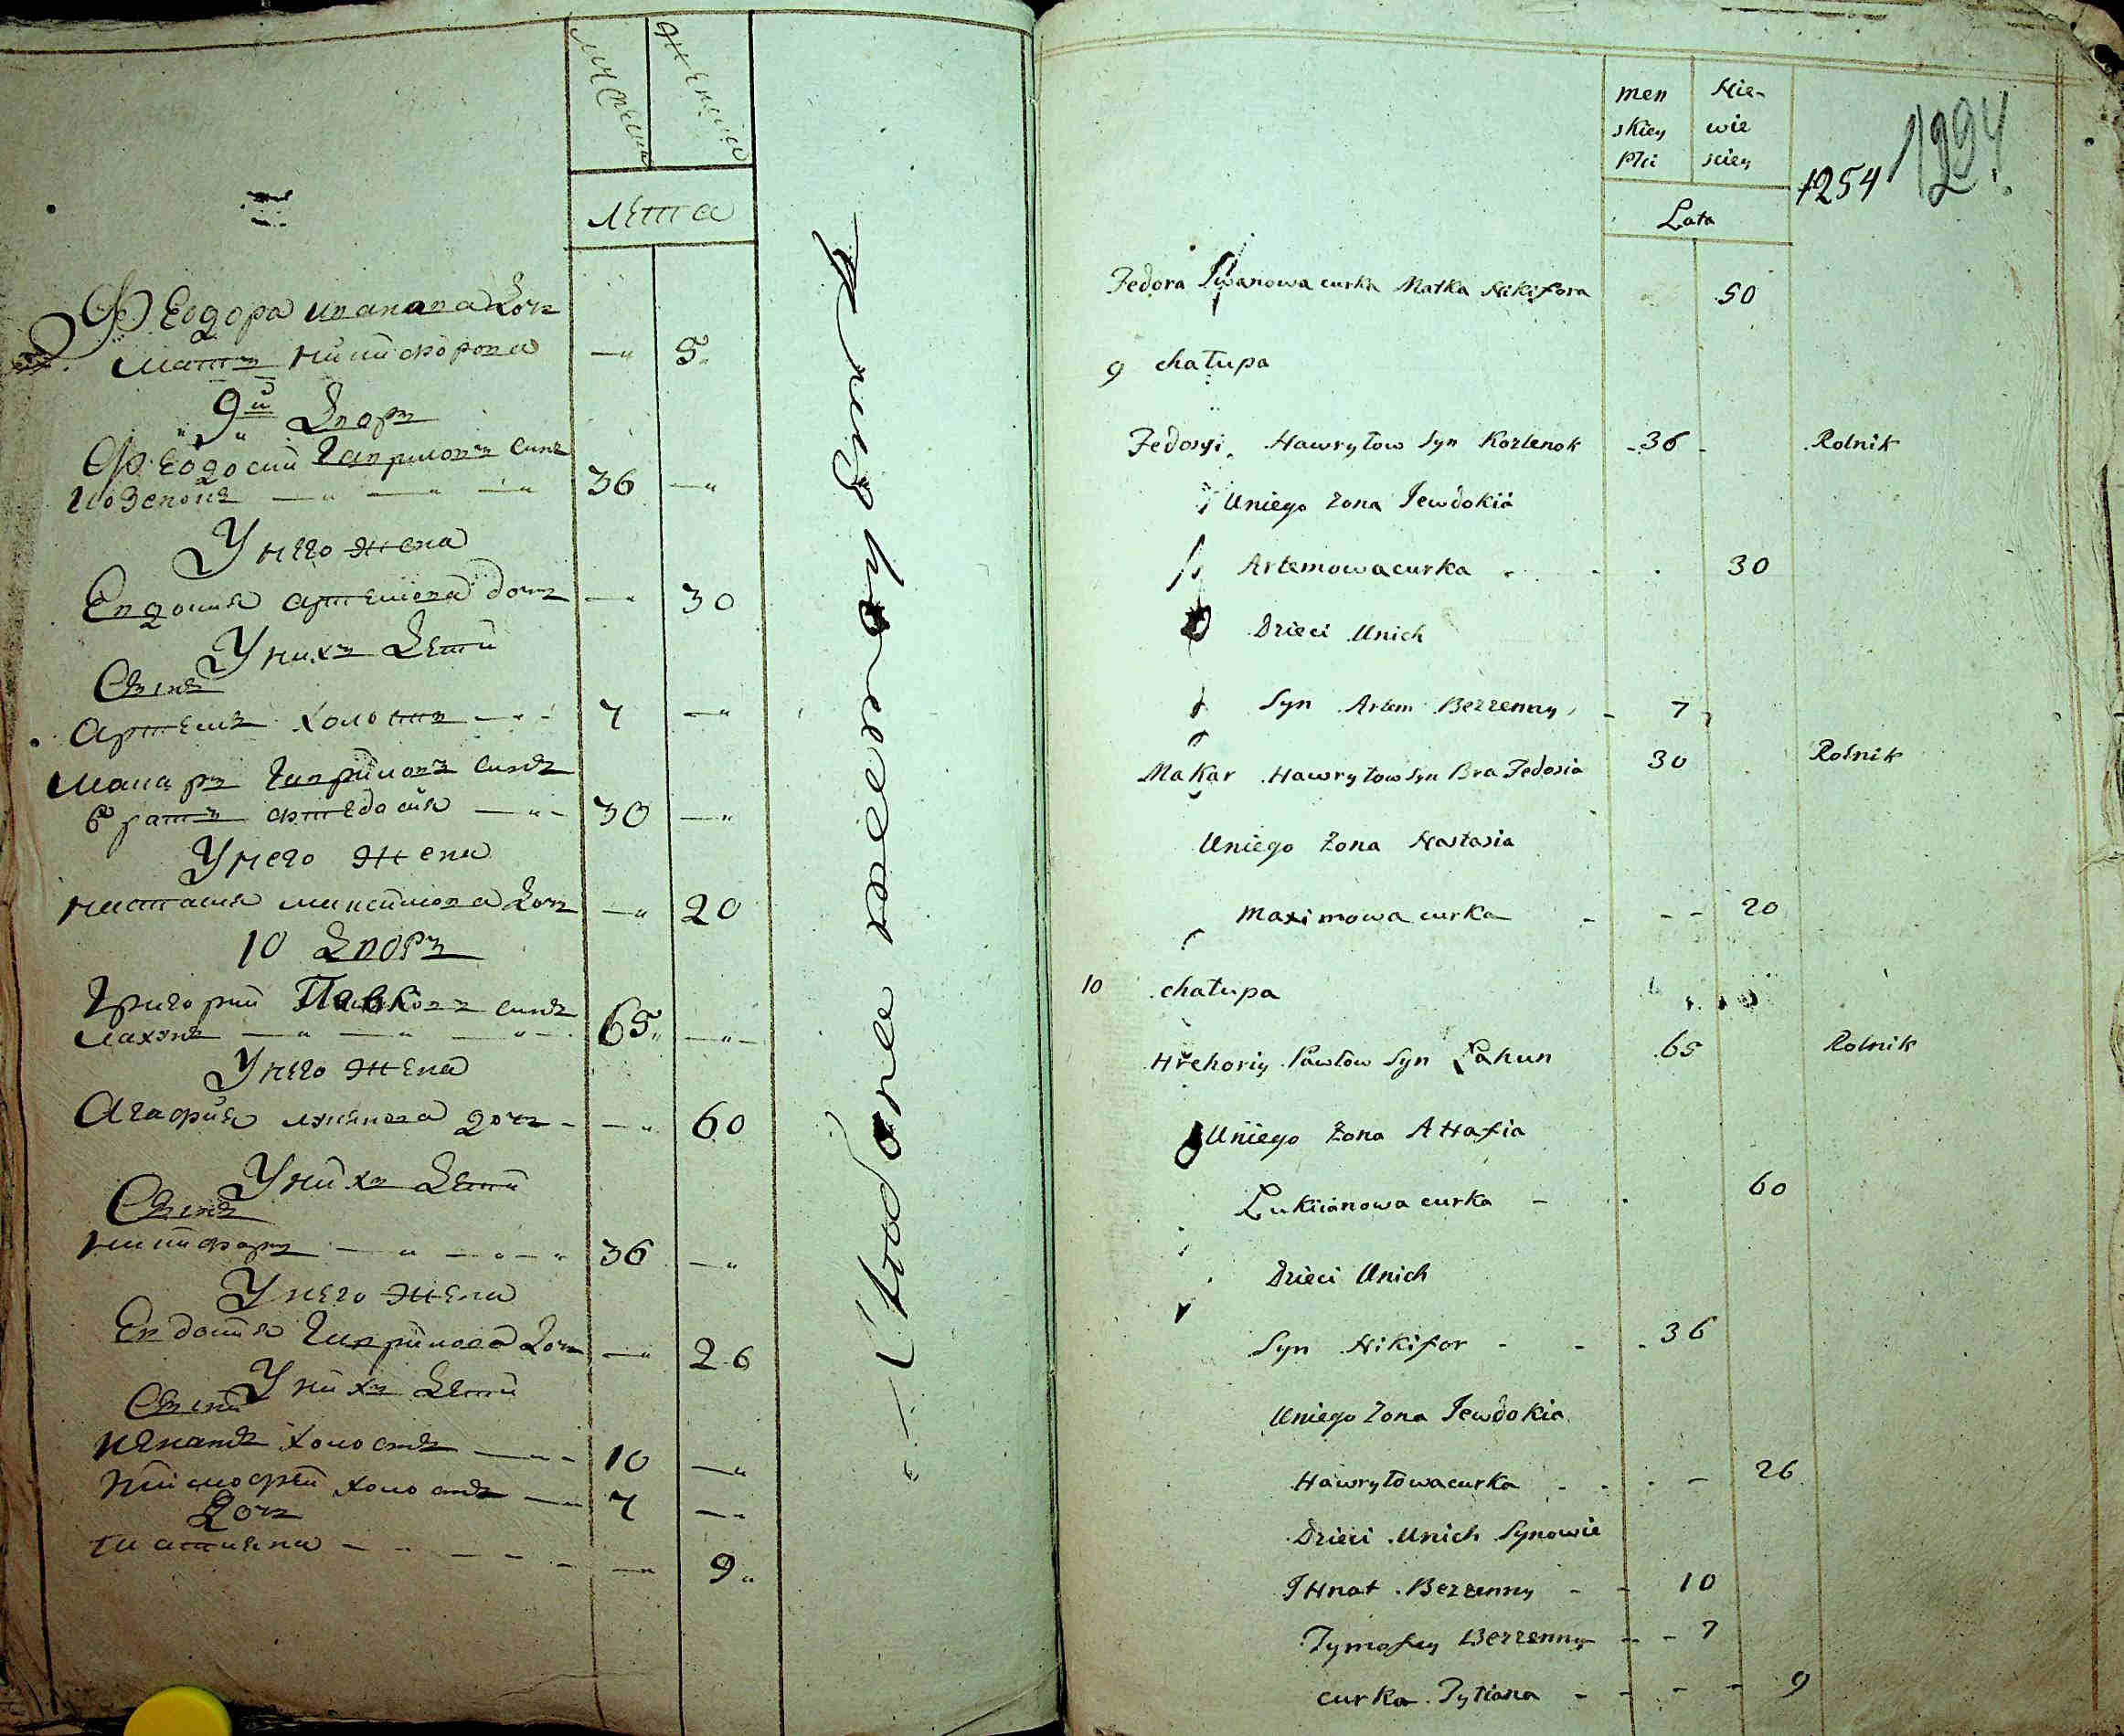 Мужеска
Женска
Лета
Феодора иванова дочь
мать никифорова — 5
9й Дворъ
Феодосий гаврилов синъ
козленокъ — 36 —
У него жена
Евдокия артемова дочь — 30
У нихъ дети
Синъ
артемъ холостъ — 7 —
Макаръ гаврилов синъ
братъ федосия — 30 —
У него жена
настасия максимова дочь — 20
10 Дворъ
Григорий Павловъ синъ
лахунъ — 65 —
У него жена
Агафия дочь — 60
У нихъ дети
Синъ
никифоръ — 36 —
У него жена
Евдокия гаврилова дочь — 26
У нихъ дети
Сины
холостъ — 10 —
холостъ — 7 —
Дочь
татияна — 9
men Nie-
skiey wie
Płci sciey
1254 1294
Lata
Fedora Iwanowa curka Matka Nikifora 50
9 chałupa
Fedosyi Hawryłow Syn Kozlenok 36 Rolnik
Uniego żona Jewdokia
Artemowa curka 30
Dzieci Unich
Syn Artem Bezzenny 7
Makar Hawryłow Syn Bra Fedosia 30 Rolnik
Uniego żona Nastasia
Maximowa curka 20
10 chałupa
Hrehoriy Pawłow Syn Łahun 65 Rolnik
Uniego żona AHafia
Łukiianowa curka 60
Dzieci Unich
Syn Nikifor 36
Uniego żona Jewdokia
Hawryłowa curka 26
Dzieci Unich Synowie
IHnat Bezzenny 10
Tymofey Bezzenny 7
curka Tytiana 9